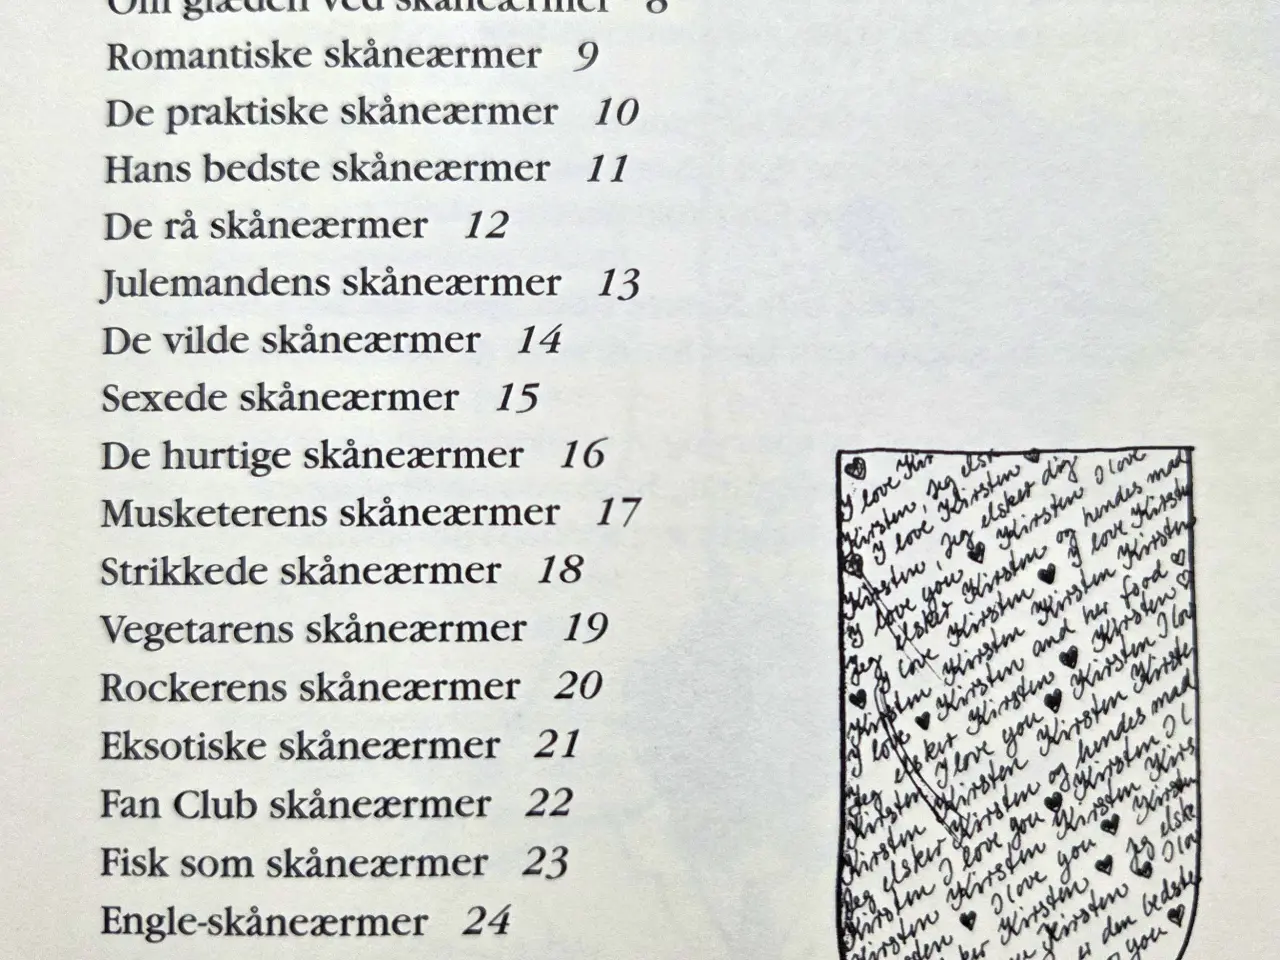 Om glæden ved skåneærmer 8
Romantiske skåneærmer 9
De praktiske skåneærmer 10
Hans bedste skåneærmer 11
De rå skåneærmer 12
Julemandens skåneærmer 13
De vilde skåneærmer 14
Sexede skåneærmer 15
De hurtige skåneærmer 16
Musketerens skåneærmer 17
Strikkede skåneærmer 18
Vegetarens skåneærmer 19
Rockerens skåneærmer 20
Eksotiske skåneærmer 21
Fan Club skåneærmer 22
Fisk som skåneærmer 23
Engle-skåneærmer 24
I love Kir
Kirsten, Jeg elsk
I love Kirsten
Kirsten, Jeg elsker dig
I love you Kirsten I love
Jeg elsker Kirsten og hendes mad
I love Kirsten I love Kirste
Kirsten Kirsten Kirsten Kirsten
I love Kirsten and her food
Jeg elsker Kirsten Kirsten
Kirsten I love you Kirsten I lov
Kirsten Kirsten Kirsten Kirste
Jeg elsker Kirsten og hendes mad
Kirsten I love you Kirsten I l
Kirsten Kirsten Kirsten Kirs
I love you Kirsten
Kirsten Jeg elske
Kirsten I lo
er den bedste
you